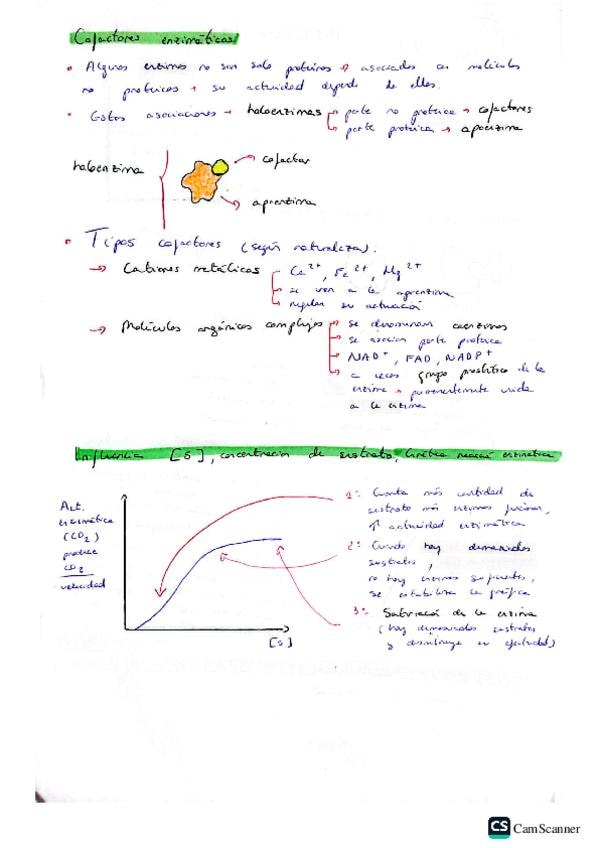 Cofactores enzimáticos
• Algunas enzimas no son solo proteínas → asociadas con moléculas
no proteicas → su actividad depende de ellas.
• Estas asociaciones → holoenzimas parte no proteica → cofactores
parte proteica → apoenzima
holoenzima
cofactor
apoenzima
• Tipos cofactores (según naturaleza).
→ Cationes metálicos Ca²⁺, Fe²⁺, Mg²⁺
se unen a la apoenzima
regulan su actuación
→ Moléculas orgánicas complejas se denominan coenzimas
se asocian parte proteica
NAD⁺, FAD, NADP⁺
a veces grupo prostético de la
enzima → permanentemente unida
a la enzima
Influencia [S], concentración de sustrato, Cinética reacción enzimática
Act.
enzimática
(CO₂)
produce
CO₂
velocidad
[S]
1º: Cuanta más cantidad de
sustrato más enzimas funcionan,
↑ actividad enzimática
2º: Cuando hay demasiados
sustratos,
no hay enzimas suficientes,
se estabiliza la gráfica
3º: Saturación de la enzima
(hay demasiados sustratos
y disminuye su efectividad)
CS CamScanner